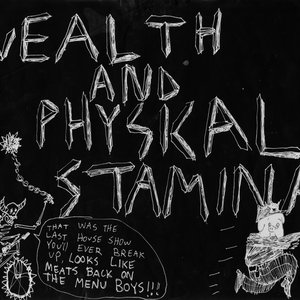 WEALTH
AND
PHYSICAL
STAMINA
THAT WAS THE
LAST HOUSE SHOW
YOU'LL EVER BREAK
UP, LOOKS LIKE
MEATS BACK ON
THE MENU BOYS!!!